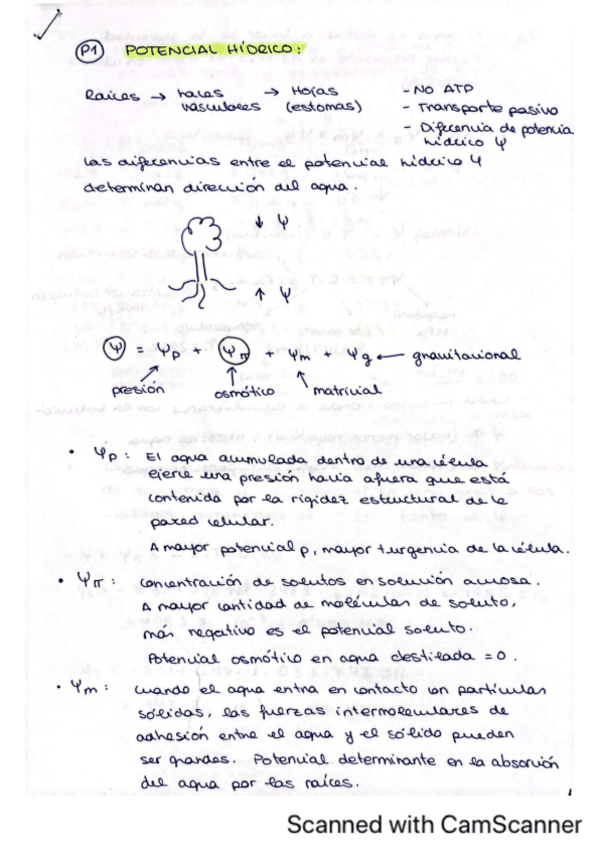 P1 POTENCIAL HÍDRICO:
Raíces → haces vasculares → Hojas (estomas)
- NO ATP
- Transporte pasivo
- Diferencia de potencia hídrico Ψ
Las diferencias entre el potencial hídrico Ψ
determinan dirección del agua.
↓ Ψ
↑ Ψ
Ψ = Ψp + Ψπ + Ψm + Ψg ← gravitacional
presión osmótico matricial
• Ψp: El agua acumulada dentro de una célula
ejerce una presión hacia afuera que está
contenida por la rigidez estructural de la
pared celular.
A mayor potencial p, mayor turgencia de la célula.
• Ψπ: Concentración de solutos en solución acuosa.
A mayor cantidad de moléculas de soluto,
más negativo es el potencial soluto.
Potencial osmótico en agua destilada = 0.
• Ψm: Cuando el agua entra en contacto con partículas
sólidas, las fuerzas intermoleculares de
adhesión entre el agua y el sólido pueden
ser grandes. Potencial determinante en la absorción
del agua por las raíces.
Scanned with CamScanner